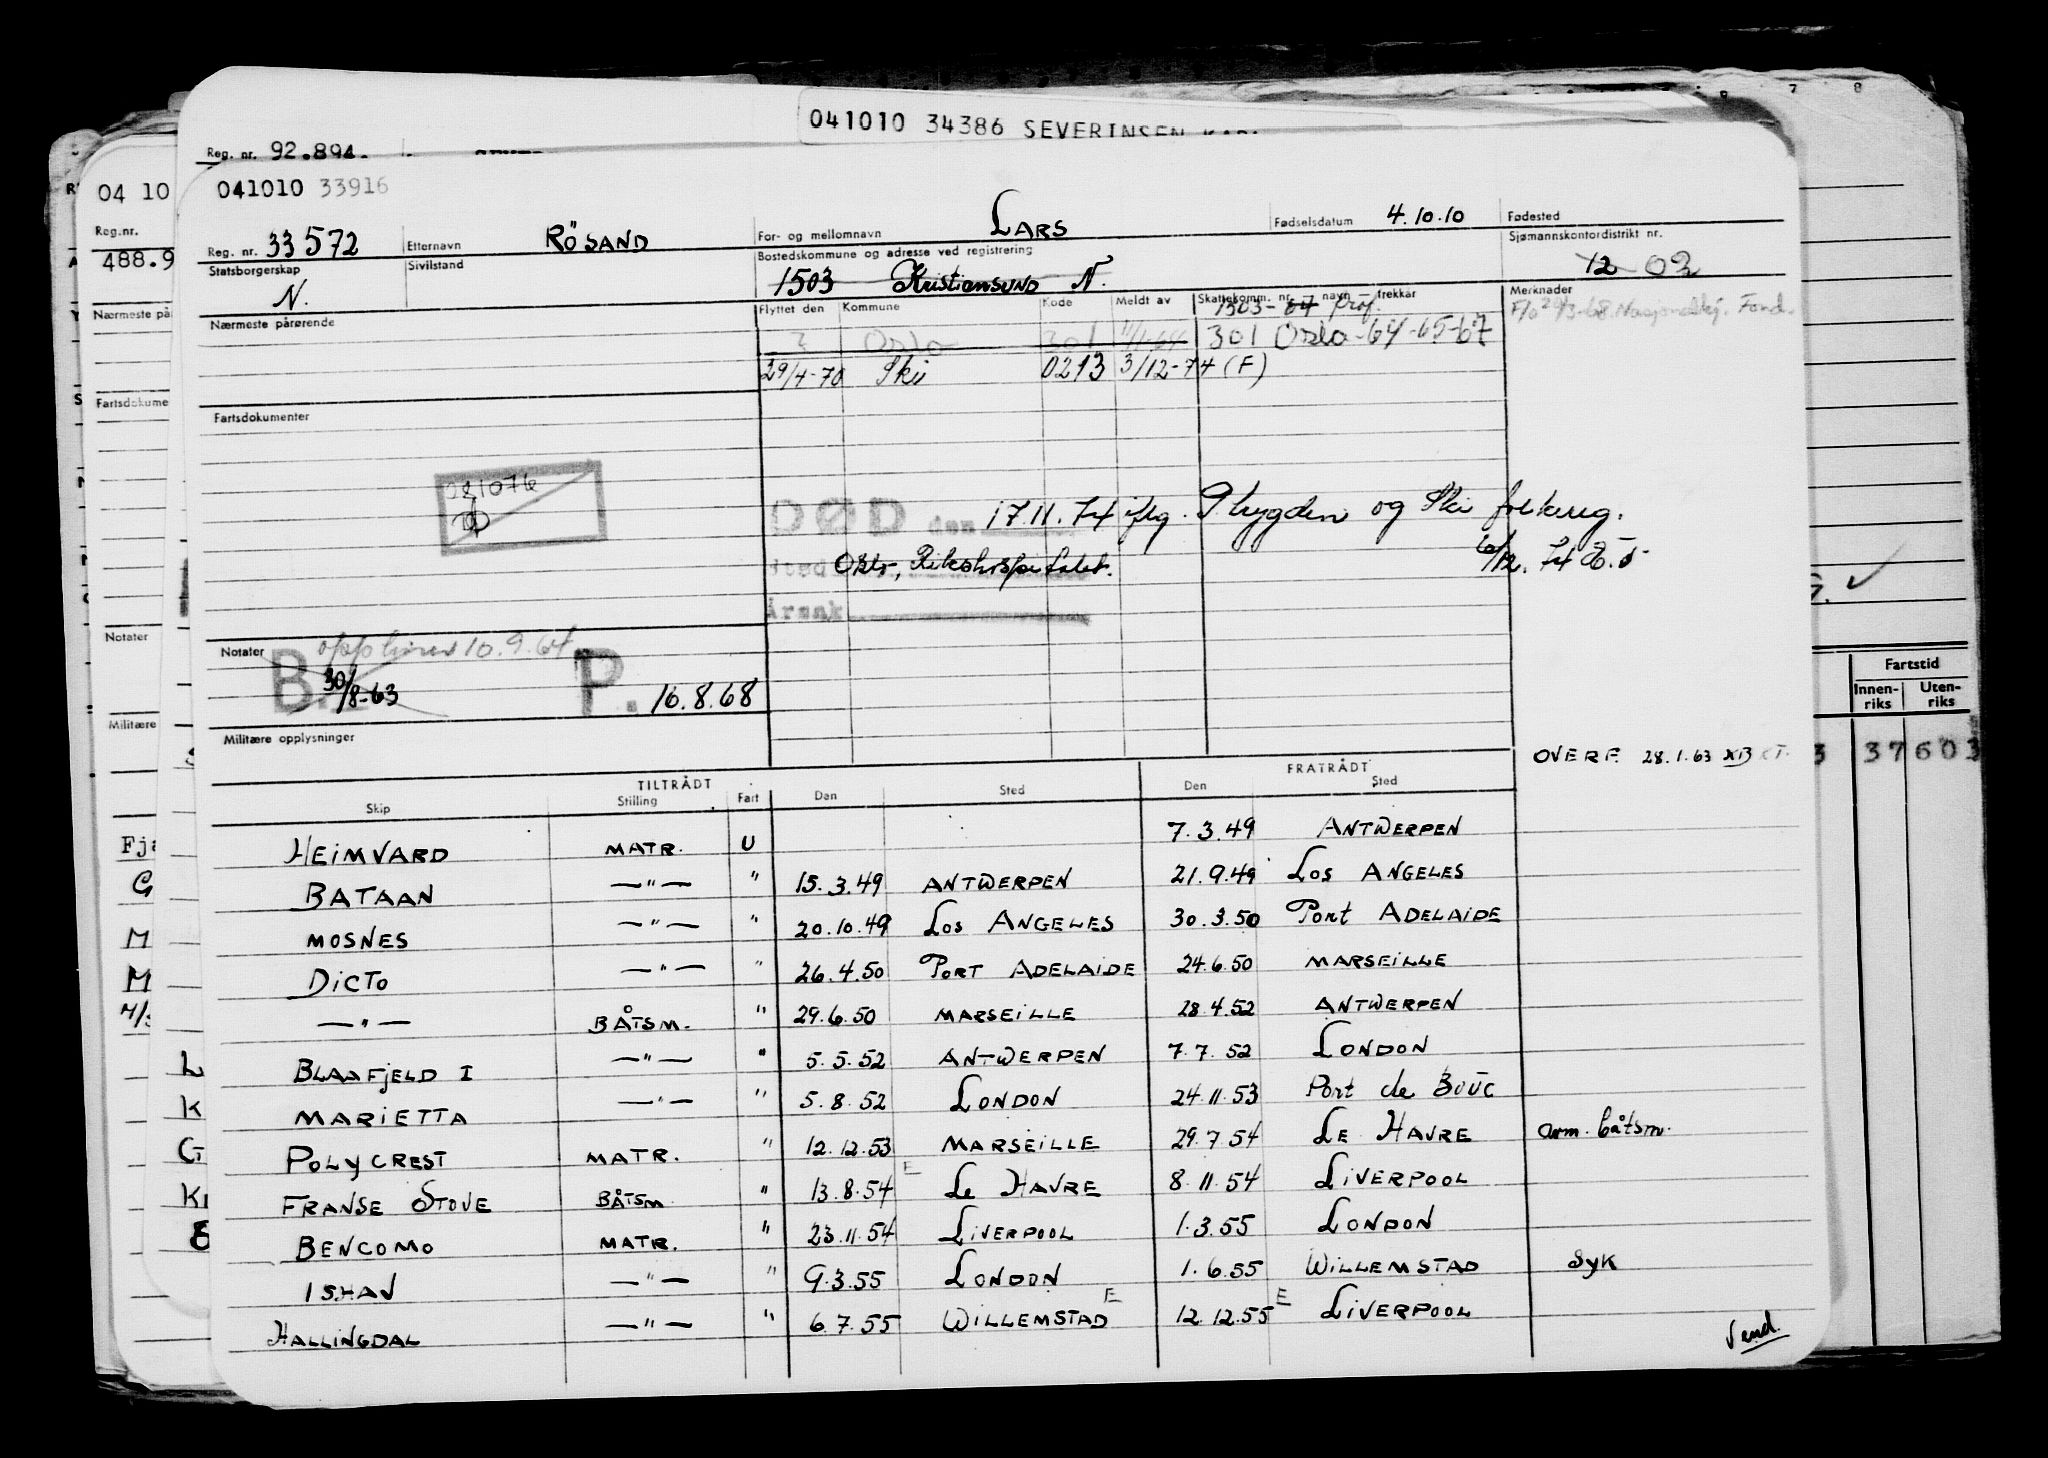 041010 34386 SEVERINSEN
Reg. nr. 92.894.
041010 33916
04 10
Reg.nr.
488.9
Reg. nr. 33572 Etternavn RÖSAND For- og mellomnavn LARS Fødselsdatum 4.10.10 Fødested
Statsborgerskap N. Sivilstand Bostedskommune og adresse ved registrering 1503 Kristiansund N. Sjømannskontordistrikt nr. 12 02
Nærmeste pårørende Flyttet den Kommune Kode Meldt av Skattekomm. nr. – navn – frekkar Merknader
1503-64 prof.
? Oslo 301 11/1-64 301 Oslo-64-65-67
29/4-70 Ski 0213 3/12-74 (F)
Fartsdokumenter
081076
DØD den 17.11.74 iflg. Trygden og Ski folkereg.
Sted Oslo, Rikshospitalet. 6/12.74
Årsak
Notater opphører 10.9.64
B. 30/8-63 P. 16.8.68
Militære opplysninger
OVERF. 28.1.63
Fartstid
Innen-riks Uten-riks
3 37 603
TILTRÅDT FRATRÅDT
Skip Stilling Fart Den Sted Den Sted
HEIMVARD MATR. U 7.3.49 ANTWERPEN
BATAAN —"— " 15.3.49 ANTWERPEN 21.9.49 LOS ANGELES
MOSNES —"— " 20.10.49 LOS ANGELES 30.3.50 PORT ADELAIDE
DICTO —"— " 26.4.50 PORT ADELAIDE 24.6.50 MARSEILLE
—"— BÅTSM. " 29.6.50 MARSEILLE 28.4.52 ANTWERPEN
BLAAFJELD I —"— " 5.5.52 ANTWERPEN 7.7.52 LONDON
MARIETTA —"— " 5.8.52 LONDON 24.11.53 PORT de BOUC
POLYCREST MATR. " 12.12.53 MARSEILLE 29.7.54 LE HAVRE om. båtsm.
FRANSE STOVE BÅTSM " 13.8.54 E Le HAVRE 8.11.54 LIVERPOOL
BENCOMO MATR. " 23.11.54 LIVERPOOL 1.3.55 LONDON
ISHAV —"— " 9.3.55 LONDON 1.6.55 WILLEMSTAD Syk
HALLINGDAL —"— " 6.7.55 WILLEMSTAD E 12.12.55 E LIVERPOOL
Vend.